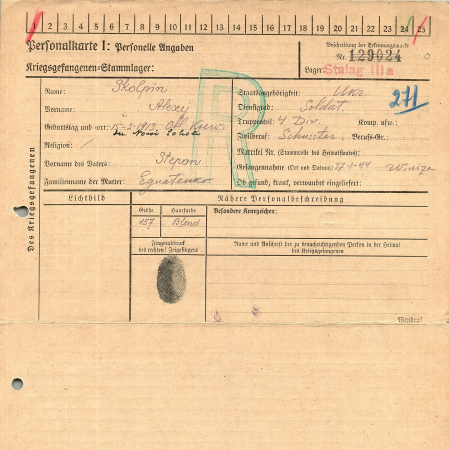 1 2 3 4 5 6 7 8 9 10 11 12 13 14 15 16 17 18 19 20 21 22 23 24 25
Personalkarte I: Personelle Angaben
Kriegsgefangenen-Stammlager:
Beschriftung der Erkennungsmarke
Nr. 129024
Lager: Stalag IIIa
Des Kriegsgefangenen
Name: Skolpin
Vorname: Alexej
Geburtstag und -ort: 15-3-1913 Obl. Kiew
Religion: /
Vorname des Vaters: Stepan
Familienname der Mutter: Egnatenko
R
Staatsangehörigkeit: Ukr.
Dienstgrad: Soldat
Truppenteil: 4 Div. Komp. usw.:
Zivilberuf: Schuster Berufs-Gr.:
Matrikel Nr. (Stammrolle des Heimatstaates):
Gefangennahme (Ort und Datum): 27-1-44 Winiza
Ob gesund, krank, verwundet eingeliefert:
271
Lichtbild
Nähere Personalbeschreibung
Größe Haarfarbe Besondere Kennzeichen:
157 Blond
Fingerabdruck
des rechten! Zeigefingers
Name und Anschrift der zu benachrichtigenden Person in der Heimat
des Kriegsgefangenen
Wenden!